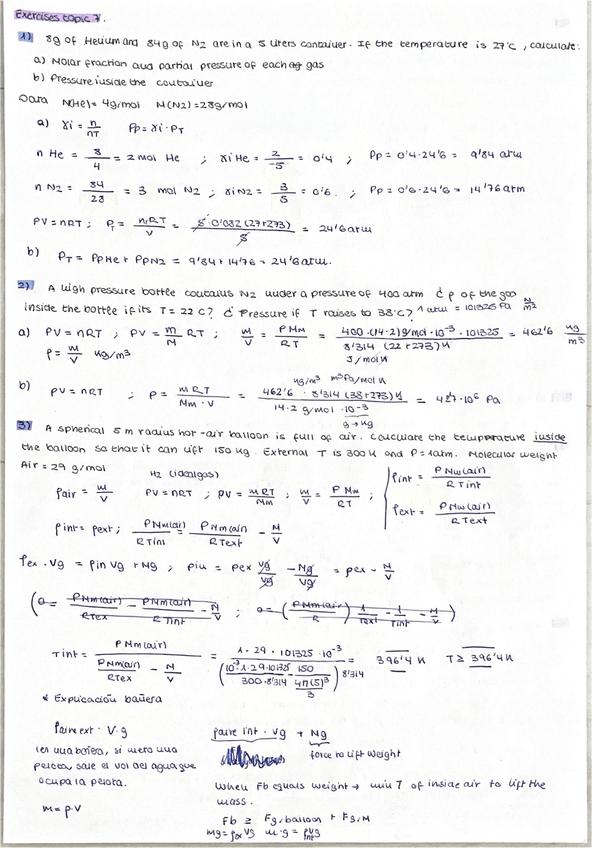 Exercises topic 7.
1) 8g of Helium and 84g of N2 are in a 5 liters container. If the temperature is 27°C, calculate:
a) Molar fraction and partial pressure of each gas
b) Pressure inside the container
Data M(He)= 4g/mol M(N2)=28g/mol
a) χi = n/nT Pp= χi·PT
n He = 8/4 = 2 mol He ; χi He = 2/5 = 0'4 ; Pp = 0'4·24'6 = 9'84 atm
n N2 = 84/28 = 3 mol N2 ; χi N2 = 3/5 = 0'6. ; Pp = 0'6·24'6 = 14'76 atm
PV = nRT ; Pt = nRT/V = 5·0'082 (27+273)/5 = 24'6 atm
b) PT = PpHe + PpN2 = 9'84 + 14'76 = 24'6 atm.
2) A high pressure bottle contains N2 under a pressure of 400 atm ¿ρ of the gas
inside the bottle if its T = 22°C? ¿ Pressure if T raises to 38°C? 1 atm = 101325 Pa N/m2
a) PV = nRT ; PV = m/M RT ; m/V = P Mm/RT = 400·(14·2)g/mol·10^-3·101325/8'314 (22+273)K = 462'6 kg/m3
ρ = m/V kg/m3 J/molK
kg/m3 m3Pa/mol K
b) PV = nRT ; P = mRT/Mm·V = 462'6·8'314 (38+273)K/14·2 g/mol·10^-3 = 42'7·10^6 Pa
g→kg
3) A spherical 5 m radius hot-air balloon is full of air. Calculate the temperature inside
the balloon so that it can lift 150 kg. External T is 300 K and P=1atm. Molecular weight
Air = 29 g/mol H2 (ideal gas)
ρair = m/V PV = nRT ; PV = mRT/Mm ; m/V = P Mm/RT ; ρint = P Mm(air)/R Tint
ρext = P Mm(air)/R Text
ρint = ρext ; P Mm(air)/R Tint = P Mm(air)/R Text - M/V
ρex · Vg = ρin Vg + Mg ; ρin = ρex Vg/Vg - Mg/Vg = ρex - M/V
(0 = P Mm(air)/R Tex - P Mm(air)/R Tint - M/V ; 0 = (P Mm(air)/R) 1/Text - 1/Tint - M/V)
Tint = P Mm(air)/(P Mm(air)/R Tex - M/V) = 1·29·101325·10^-3/(10^-3·1·29·101325/300·8'314 - 150/4π(5)^3/3) 8'314 = 396'4 K T ≥ 396'4 K
* Explicación bañera
ρaire ext · V·g ρaire int · Vg + Mg
(en una bañera, si meto una force to lift weight
pelota, sale el vol del agua que
ocupa la pelota. When Fb equals weight → min T of inside air to lift the
mass.
m = ρ·V Fb ≥ Fg,balloon + Fg,M